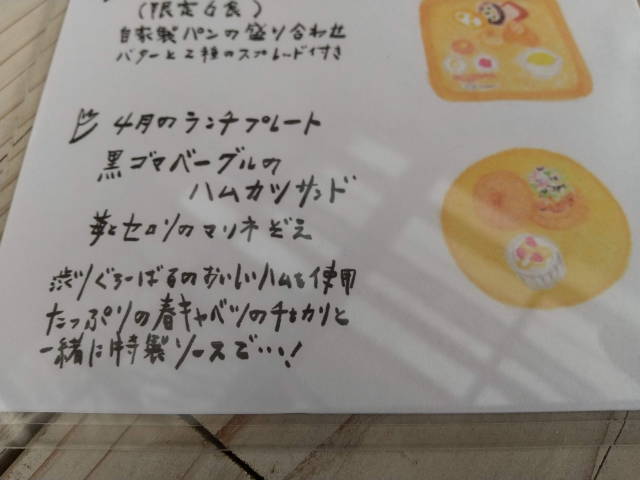 (限定6食)
自家製パンの盛り合わせ
バターと2種のスプレッド付き
4月のランチプレート
黒ゴマベーグルの
ハムカツサンド
苺とセロリのマリネぞえ
渋川ぐろーばるのおいしいハムを使用
たっぷりの春キャベツのチョカリと
一緒に特製ソースで…!